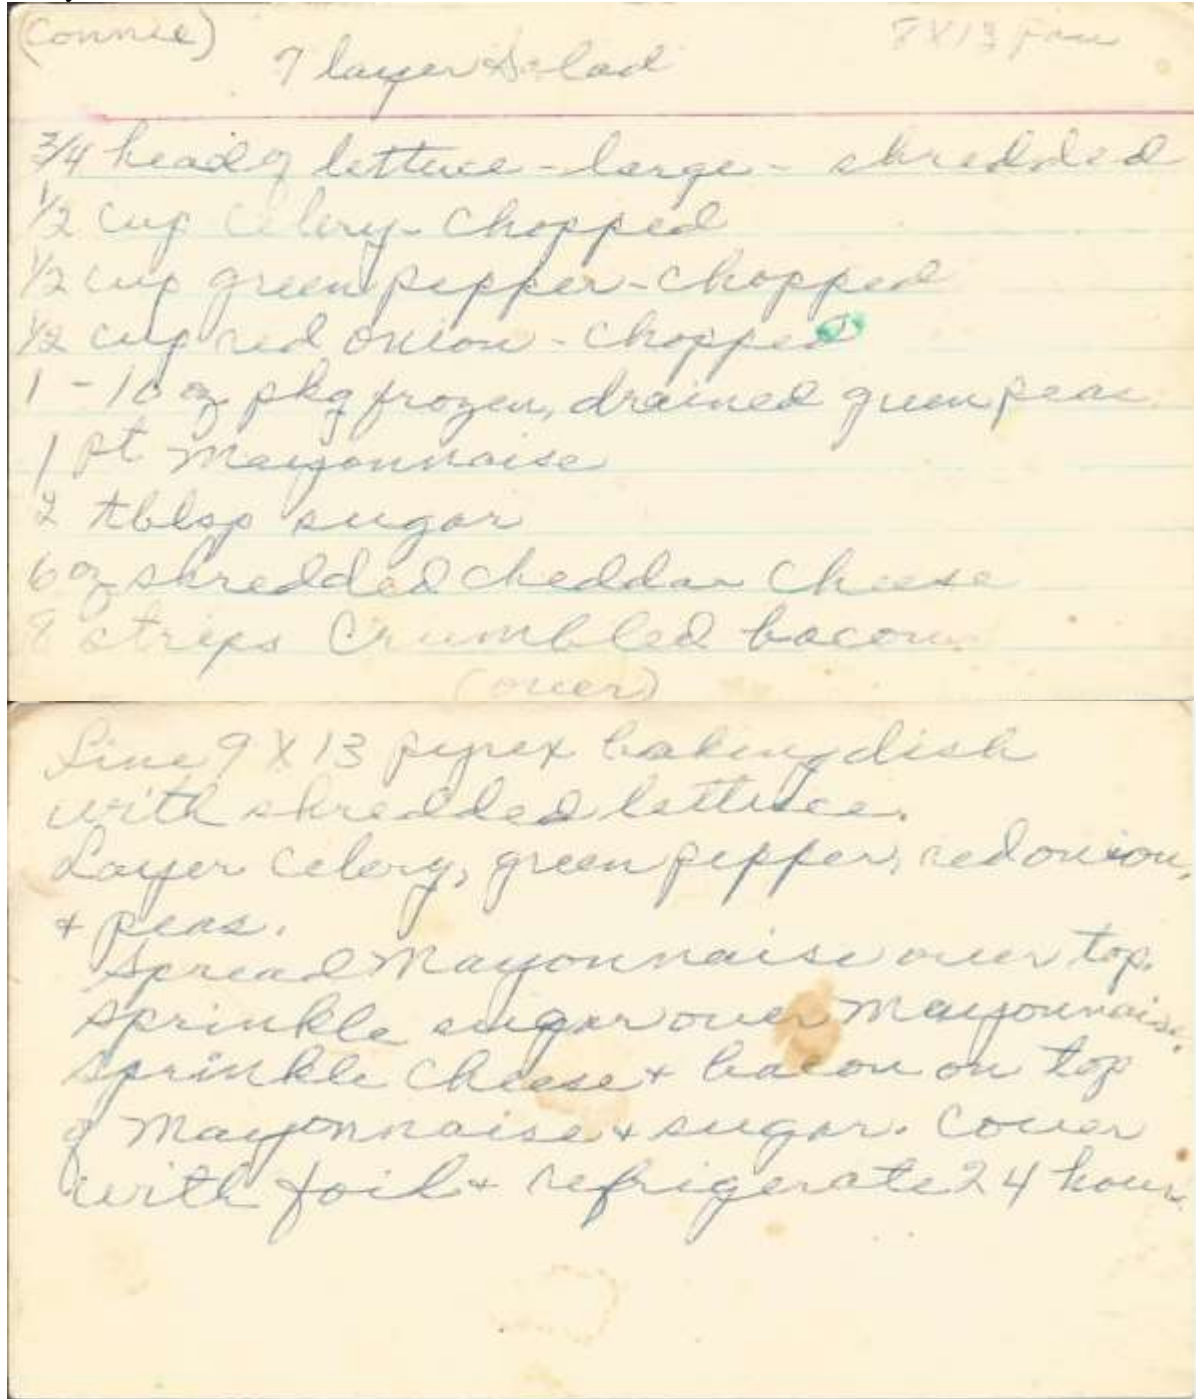 (Connie)
9 X 13 pan
7 layer Salad
3/4 head of lettuce - large - shredded
1/2 cup celery - chopped
1/2 cup green pepper - chopped
1/2 cup red onion - chopped
1 - 10 oz pkg frozen, drained green peas
1 pt Mayonnaise
2 tblsp sugar
6 oz shredded cheddar cheese
8 strips Crumbled bacon
(over)
Line 9 X 13 pyrex baking dish
with shredded lettuce.
Layer celery, green pepper, red onion,
+ peas.
Spread Mayonnaise over top.
Sprinkle sugar over Mayonnaise.
Sprinkle cheese + bacon on top
of Mayonnaise + sugar. Cover
with foil + refrigerate 24 hours.